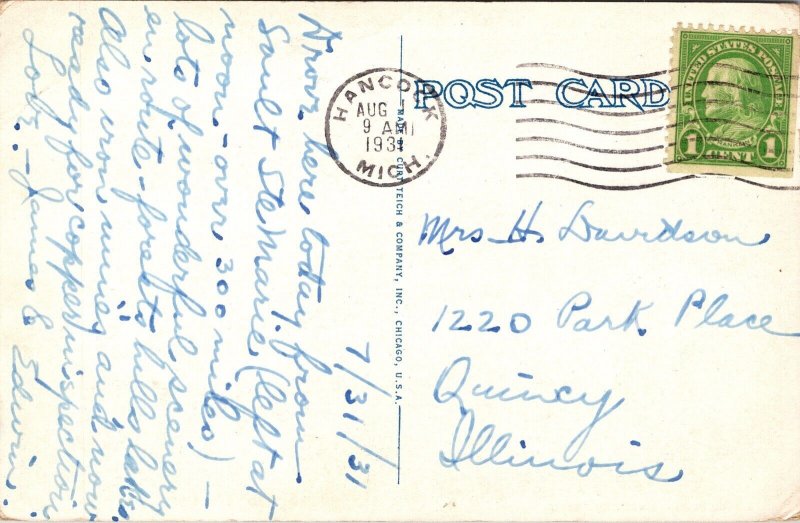 7/31/31
Drove here today from
Sault Ste Marie (left at
noon - over 300 miles) -
lots of wonderful scenery
en route - forests hills lakes
Also iron mines and now
ready for copper inspection
Love - James & Edwin.
HANCOCK
AUG
9 AM
193
MICH.
POST CARD
MADE BY CURT TEICH & COMPANY, INC., CHICAGO, U.S.A.
UNITED STATES POSTAGE
FRANKLIN
1 CENT 1
Mrs. H. Davidson
1220 Park Place
Quincy
Illinois